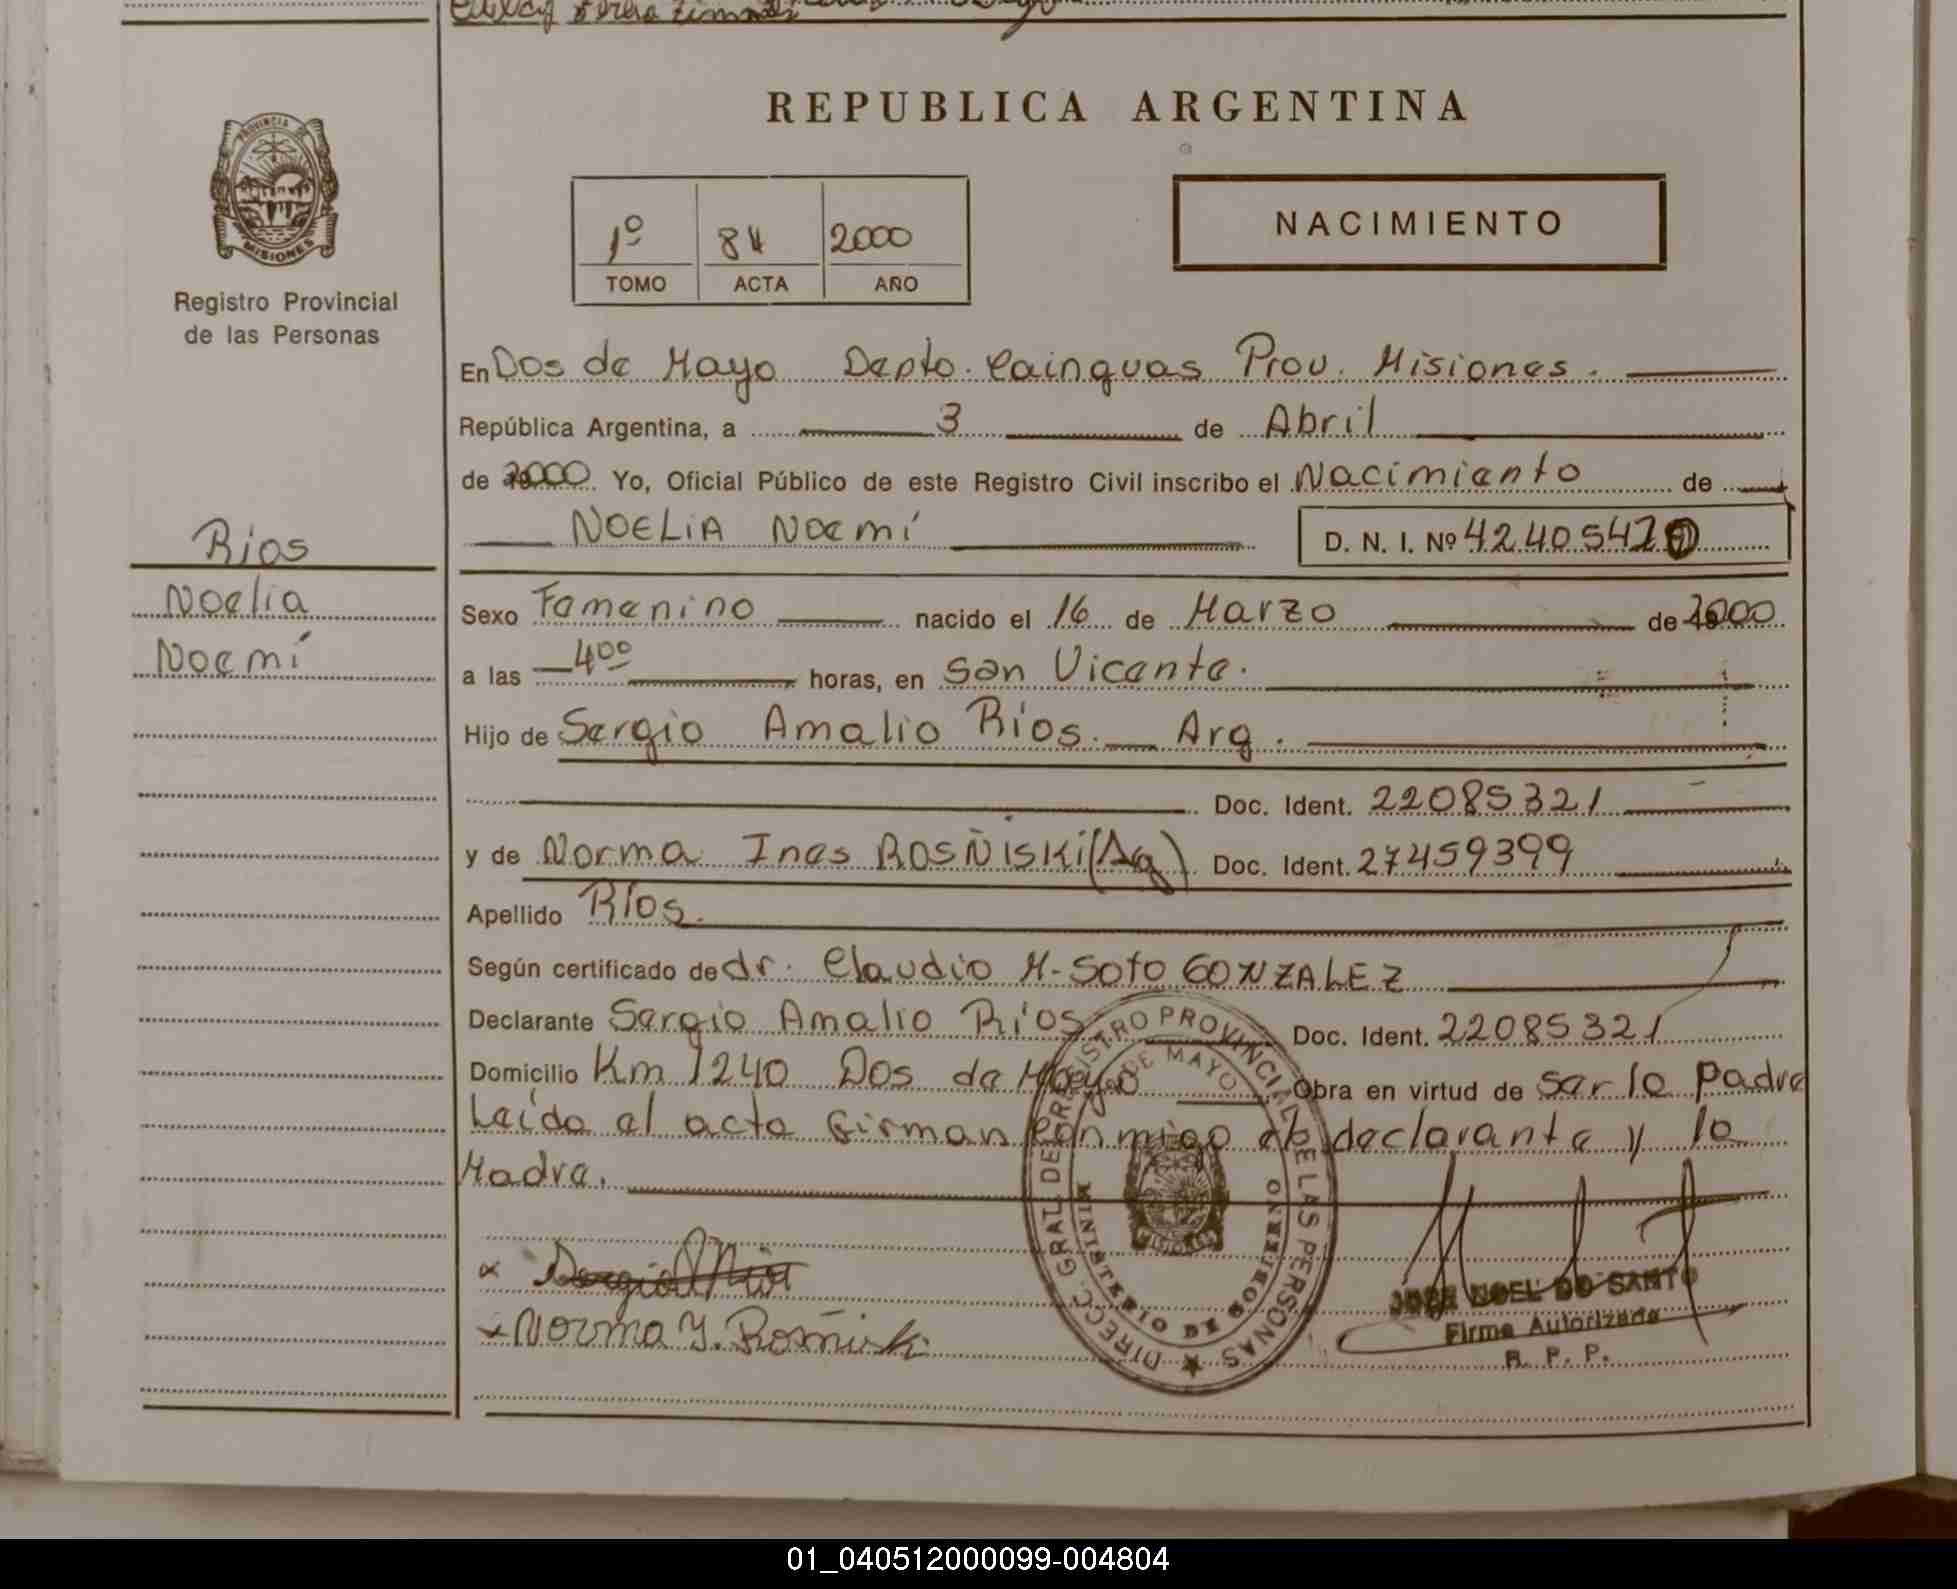 REPUBLICA ARGENTINA
PROVINCIA DE
MISIONES
Registro Provincial
de las Personas
1º 84 2000
TOMO ACTA AÑO
NACIMIENTO
En Dos de Mayo Depto. Cainguas Prov. Misiones.
República Argentina, a 3 de Abril
de 2000 Yo, Oficial Público de este Registro Civil inscribo el Nacimiento de
NOELIA Noemí D. N. I. Nº
Rios
Noelia
Noemí
Sexo Femenino nacido el 16 de Marzo de 2000
a las 400 horas, en San Vicente.
Hijo de Sergio Amalio Ríos. Arg.
Doc. Ident. 22085321
y de Norma Ines ROSÑISKI (Ag) Doc. Ident. 27459399
Apellido Ríos.
Según certificado de dr. Claudio M. Soto GONZALEZ
Declarante Sergio Amalio Ríos Doc. Ident. 22085321
Domicilio Km 1240 Dos de Mayo Obra en virtud de ser lo Padre
Leído el acta firman conmigo el declarante y la
Madre.
DIRECC. GRAL. DE REGISTRO PROVINCIAL DE LAS PERSONAS
DE MAYO
MINISTERIO DE GOBIERNO
MISIONES
Norma I. Rosñiski
JOSE NOEL DO SANTO
Firma Autorizada
R. P. P.
01_040512000099-004804